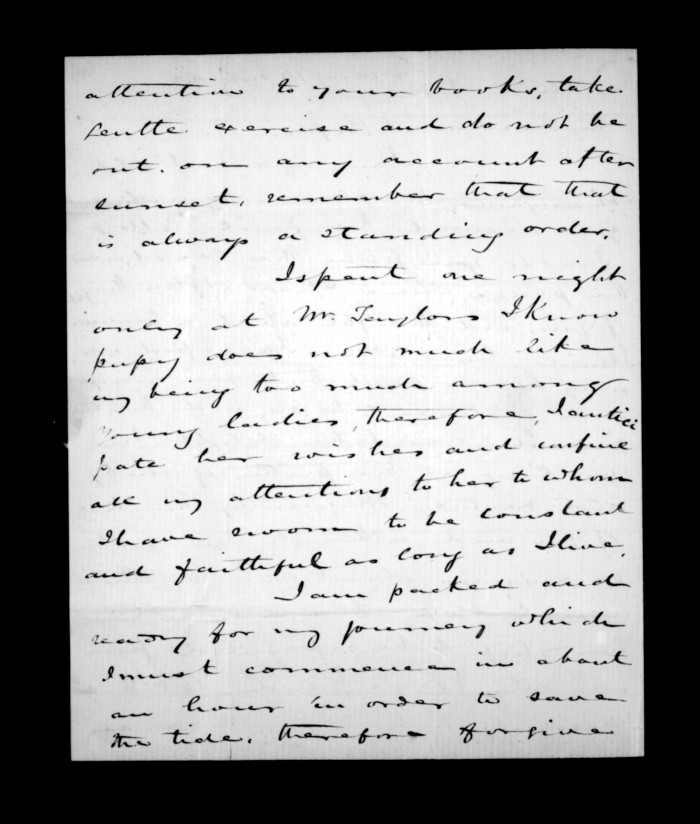 attention to your books, take
gentle exercise and do not be
out. on any account after
sunset, remember that that
is always a standing order.
I spent one night
only at Mr. Taylors I know
pussy does not much like
my being too much among
young ladies, therefore, I antici
pate her wishes and confine
all my attentions to her to whom
I have sworn to be constant
and faithful as long as I live.
I am packed and
ready for my journey which
I must commence in about
an hour in order to save
the tide. therefore forgive